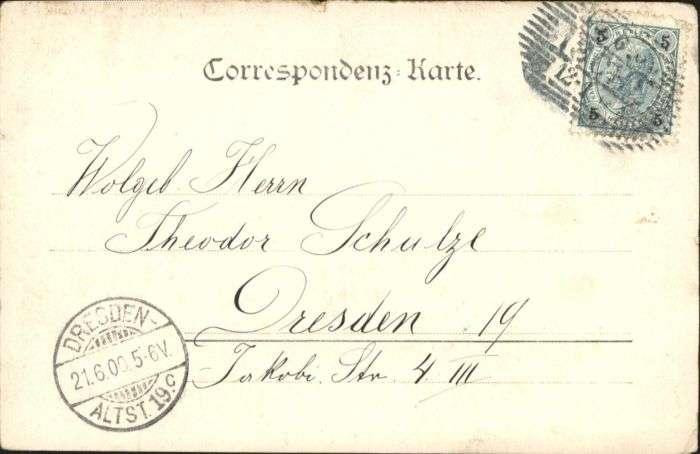 Correspondenz-Karte.
5 5
5 5
12
Wolgeb Herrn
Theodor Schulze
Dresden 19
Jakobi. Str 4 III
DRESDEN-
21.6.00.5-6V.
ALTST.19.c